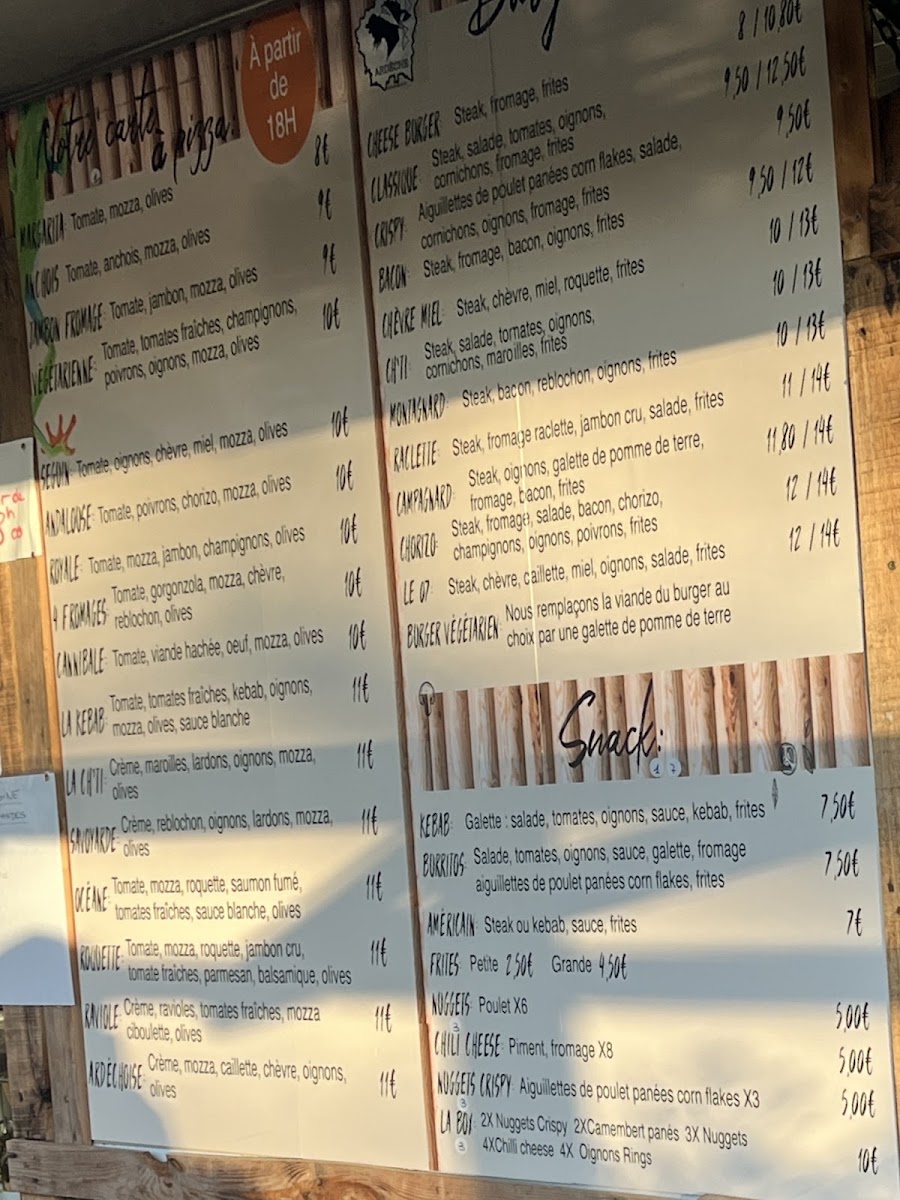 Notre carte
à pizza
À partir
de
18H
8€
MARGARITA: Tomate, mozza, olives
9€
ANCHOIS Tomate, anchois, mozza, olives
9€
JAMBON FROMAGE: Tomate, jambon, mozza, olives
VÉGÉTARIENNE: Tomate, tomates fraîches, champignons, 10€
poivrons, oignons, mozza, olives
SEGUIN: Tomate, oignons, chèvre, miel, mozza, olives 10€
ANDALOUSE: Tomate, poivrons, chorizo, mozza, olives 10€
ROYALE: Tomate, mozza, jambon, champignons, olives 10€
4 FROMAGES: Tomate, gorgonzola, mozza, chèvre, 10€
reblochon, olives
CANNIBALE: Tomate, viande hachée, oeuf, mozza, olives 10€
LA KEBAB: Tomate, tomates fraîches, kebab, oignons, 11€
mozza, olives, sauce blanche
LA CH'TI: Crème, maroilles, lardons, oignons, mozza, 11€
olives
SAVOYARDE: Crème, reblochon, oignons, lardons, mozza, 11€
olives
OCÉANE: Tomate, mozza, roquette, saumon fumé, 11€
tomates fraîches, sauce blanche, olives
ROQUETTE: Tomate, mozza, roquette, jambon cru, 11€
tomate fraîches, parmesan, balsamique, olives
RAVIOLE: Crème, ravioles, tomates fraîches, mozza 11€
ciboulette, olives
ARDÉCHOISE: Crème, mozza, caillette, chèvre, oignons, 11€
olives
ARDÈCHE
8 / 10,80€
CHEESE BURGER: Steak, fromage, frites
9,50 / 12,50€
CLASSIQUE: Steak, salade, tomates, oignons,
cornichons, fromage, frites
9,50€
CRISPY: Aiguillettes de poulet panées corn flakes, salade,
cornichons, oignons, fromage, frites
9,50 / 12€
BACON: Steak, fromage, bacon, oignons, frites
10 / 13€
CHÈVRE MIEL: Steak, chèvre, miel, roquette, frites
10 / 13€
CH'TI: Steak, salade, tomates, oignons,
cornichons, maroilles, frites
10 / 13€
MONTAGNARD: Steak, bacon, reblochon, oignons, frites
11 / 14€
RACLETTE: Steak, fromage raclette, jambon cru, salade, frites
11,80 / 14€
CAMPAGNARD: Steak, oignons, galette de pomme de terre,
fromage, bacon, frites
12 / 14€
CHORIZO: Steak, fromage, salade, bacon, chorizo,
champignons, oignons, poivrons, frites
12 / 14€
LE 07: Steak, chèvre, caillette, miel, oignons, salade, frites
BURGER VÉGÉTARIEN: Nous remplaçons la viande du burger au
choix par une galette de pomme de terre
Snack:
1 7
KEBAB: Galette : salade, tomates, oignons, sauce, kebab, frites 7,50€
BURRITOS: Salade, tomates, oignons, sauce, galette, fromage 7,50€
aiguillettes de poulet panées corn flakes, frites
AMÉRICAIN: Steak ou kebab, sauce, frites 7€
FRITES: Petite 2,50€ Grande 4,50€
NUGGETS: Poulet X6 5,00€
3
CHILI CHEESE: Piment, fromage X8 5,00€
NUGGETS CRISPY: Aiguillettes de poulet panées corn flakes X3 5,00€
3
LA BOX: 2X Nuggets Crispy 2XCamembert panés 3X Nuggets
3
4XChilli cheese 4X Oignons Rings 10€